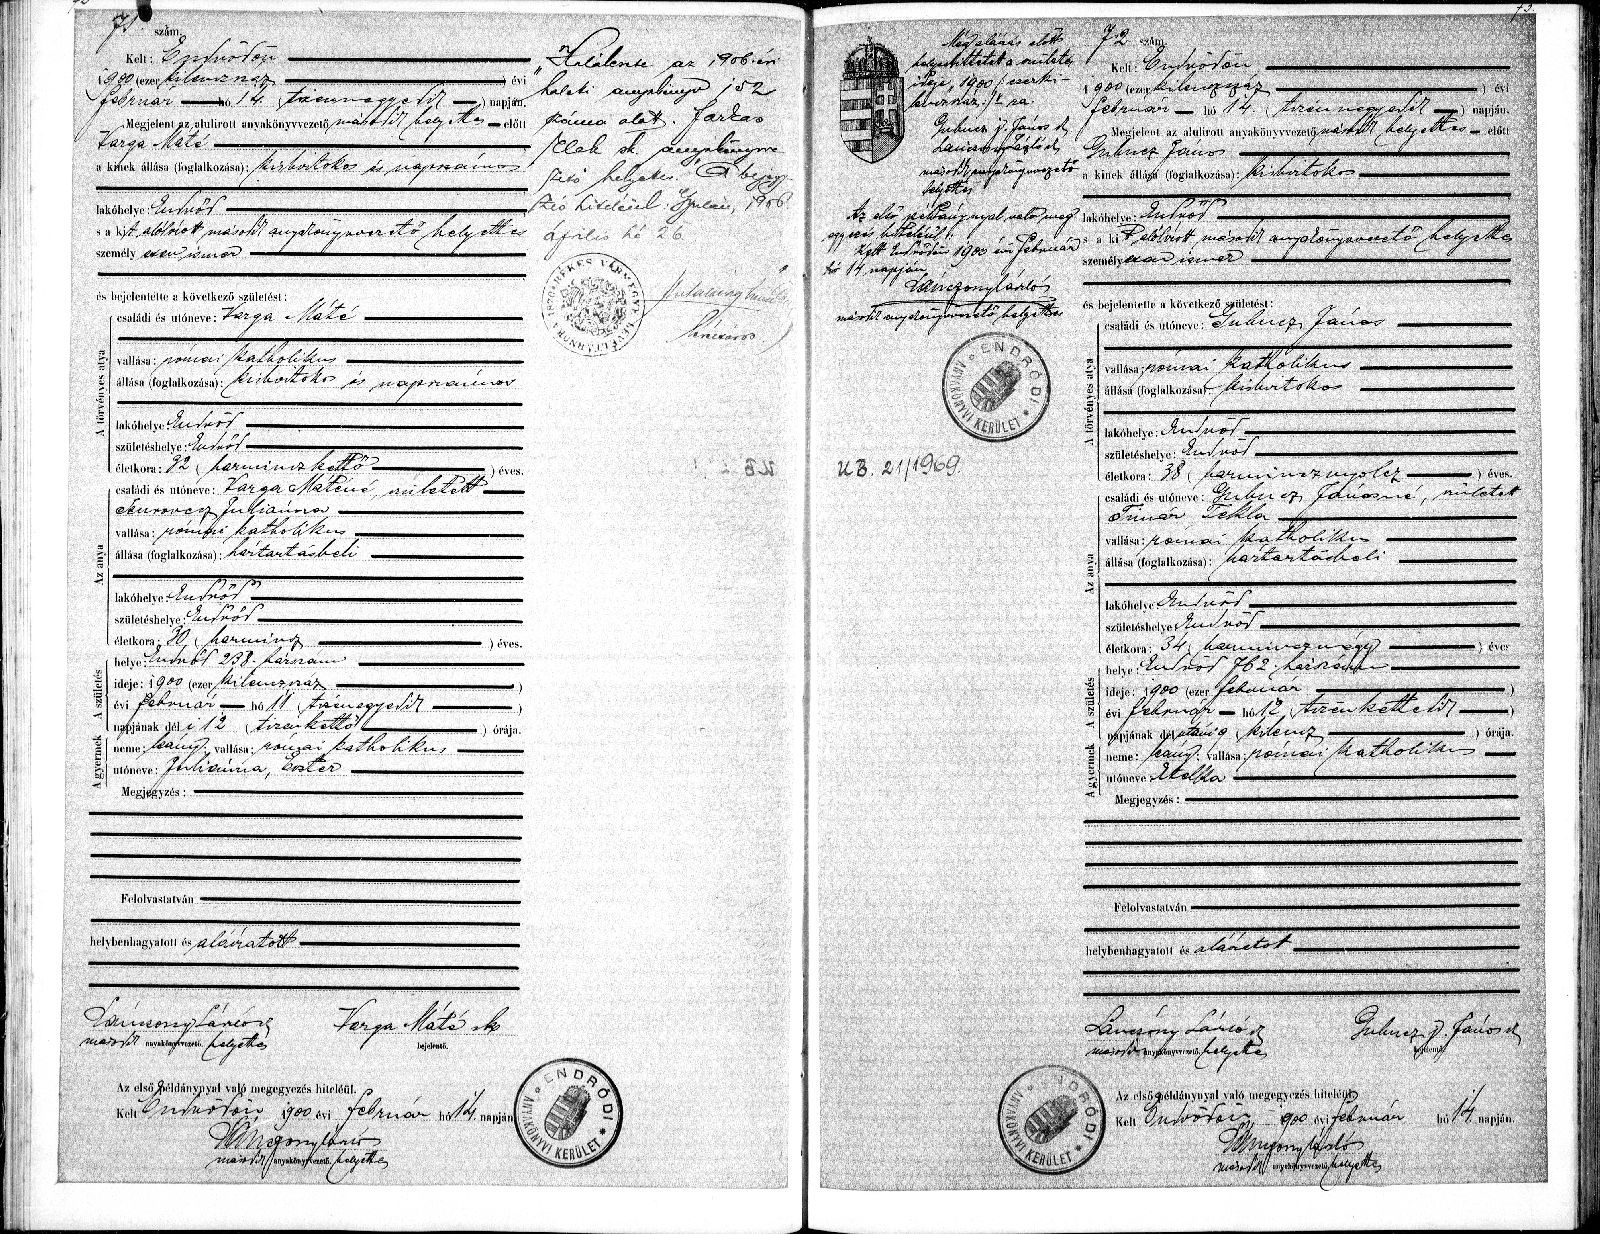 71 szám.
Kelt: Endrődön
1900 (ezer kilenczszáz ) évi
február hó 14. ( tizennegyedik ) napján.
Megjelent az alulirott anyakönyvvezető második helyettes előtt
Varga Máté
a kinek állása (foglalkozása): kisbirtokos és napszámos
lakóhelye: Endrőd
s a kit alólirott második anyakönyvvezető helyettes
személyesen ismer
és bejelentette a következő születést:
A törvényes atya
családi és utóneve: Varga Máté
vallása: római katholikus
állása (foglalkozása): kisbirtokos és napszámos
lakóhelye: Endrőd
születéshelye: Endrőd
életkora: 32 ( harminczkettő ) éves.
Az anya
családi és utóneve: Varga Máténé, született
Julianna
vallása: római katholikus
állása (foglalkozása): háztartásbeli
lakóhelye: Endrőd
születéshelye: Endrőd
életkora: 30 ( harmincz ) éves.
A születés
helye: Endrőd 238. házszám
ideje: 1900 (ezer kilenczszáz )
évi február hó 11 ( tizenegyedik )
napjának dél i 12 ( tizenkettő ) órája.
A gyermek
neme: leány. vallása: római katholikus
utóneve: Julianna, Eszter
Megjegyzés:
Felolvastatván
helybenhagyatott és aláiratott
Lánczony László
második anyakönyvvezető. helyettes
Varga Máté sk
bejelentő.
Az első példánynyal való megegyezés hiteléül.
Kelt Endrődön 1900 évi február hó 14. napján
Lánczony László
második anyakönyvvezető. helyettes
ENDRŐDI ANYAKÖNYVI KERÜLET
"Halálesete az 1906. évi
halotti anyakönyv 152
száma alatt. Farkas
Elek sk. anyakönyvve
zető helyettes." A bejegy
zés hiteléül. Gyulán, 1906
április hó 26.
BÉKÉS VÁRMEGYE
72 szám.
Kelt: Endrődön
1900 (ezer kilenczszáz ) évi
február hó 14 ( tizennegyedik ) napján.
Megjelent az alulirott anyakönyvvezető második helyettes előtt
Gubucz János
a kinek állása (foglalkozása): kisbirtokos
lakóhelye: Endrőd
s a kit alólirott második anyakönyvvezető helyettes
személyesen ismer
és bejelentette a következő születést:
A törvényes atya
családi és utóneve: Gubucz János
vallása: római katholikus
állása (foglalkozása): kisbirtokos
lakóhelye: Endrőd
születéshelye: Endrőd
életkora: 38 ( harmincznyolcz ) éves.
Az anya
családi és utóneve: Gubucz Jánosné, született
Timár Tekla
vallása: római katholikus
állása (foglalkozása): háztartásbeli
lakóhelye: Endrőd
születéshelye: Endrőd
életkora: 34 ( harmincznégy ) éves
A születés
helye: Endrőd 762 házszám
ideje: 1900 (ezer február )
évi február hó 12 ( tizenkettedik )
napjának délután 9 ( kilencz ) órája.
A gyermek
neme: leány. vallása: római katholikus
utóneve: Etelka
Megjegyzés:
Felolvastatván
helybenhagyatott és aláiratott
Lánczony László
második anyakönyvvezető. helyettes
Gubucz J. János
bejelentő.
Az első példánynyal való megegyezés hiteléül.
Kelt Endrődön 1900 évi február hó 14. napján.
Lánczony László
második anyakönyvvezető. helyettes
ENDRŐDI ANYAKÖNYVI KERÜLET
Megalairás előtt
helyesbittetett a születés
ideje, 1900 (ezerki-
lenczszáz:)/ ra.
Gubucz J. János
Lánczony László
második anyakönyvvezető
helyettes
Az első példánynyal való meg
egyezés hiteléül:
Kelt Endrődön 1900 évi február
hó 14 napján
Lánczony László
második anyakönyvvezető helyettes
ENDRŐDI ANYAKÖNYVI KERÜLET
U.B. 21/1969.